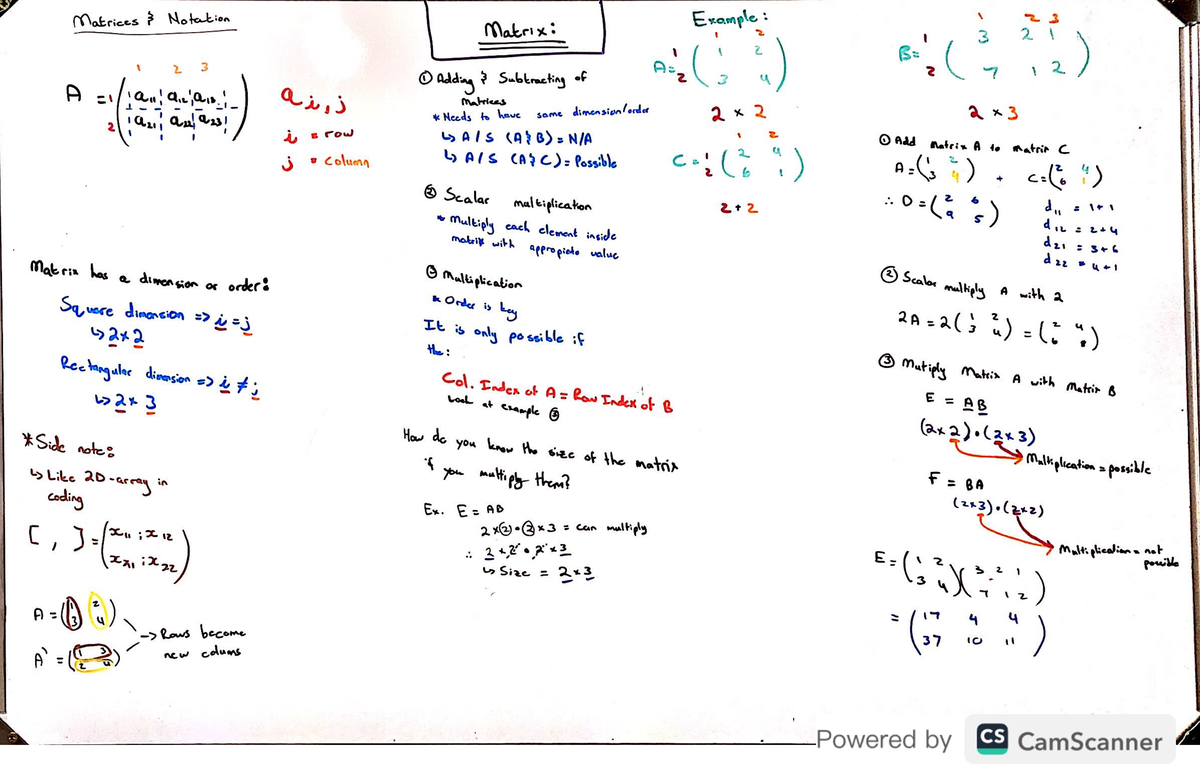 Matrices & Notation
1 2 3
A = 1 ( a11 a12 a13 )
2 ( a21 a22 a23 )
ai,j
i = row
j = column
Matrix has a dimension or order:
Square dimension => i = j
↳ 2x2
Rectangular dimension => i ≠ j
↳ 2x3
*Side note:
↳ Like 2D-array in
coding
[ , ] = ( x11 ; x12
x21 ; x22 )
A = ( 1 2
3 4 )
A` = ( 1 3
2 4 )
-> Rows become
new colums
Matrix:
① Adding & Subtracting of
Matrices
* Needs to have same dimension/order
↳ A/S (A & B) = N/A
↳ A/S (A & C) = Possible
② Scalar multiplication
* Multiply each element inside
matrix with appropiate value
③ Multiplication
* Order is key
It is only possible if
the:
Col. Index of A = Row Index of B
Look at example ③
How do you know the size of the matrix
if you multiply them?
Ex. E = AB
2x②•②x3 = can multiply
∴ 2x2•2x3
↳ Size = 2x3
Example:
1 2
A = 1 ( 1 2
2 3 4 )
2 x 2
1 2
C = 1 ( 2 4
2 6 1 )
2 + 2
1 2 3
B = 1 ( 3 2 1
2 7 1 2 )
2 x 3
① Add matrix A to matrix C
A = ( 1 2
3 4 ) + C = ( 2 4
6 1 )
∴ D = ( 2 6
9 5 )
d11 = 1+1
d12 = 2+4
d21 = 3+6
d22 = 4+1
② Scalar multiply A with 2
2A = 2 ( 1 2
3 4 ) = ( 2 4
6 8 )
③ Mutiply Matrix A with Matrix B
E = AB
(2x2)•(2x3)
Multiplication = possible
F = BA
(2x3)•(2x2)
Multiplication = not
possible
E = ( 1 2
3 4 ) ( 3 2 1
7 1 2 )
= ( 17 4 4
37 10 11 )
Powered by CS CamScanner